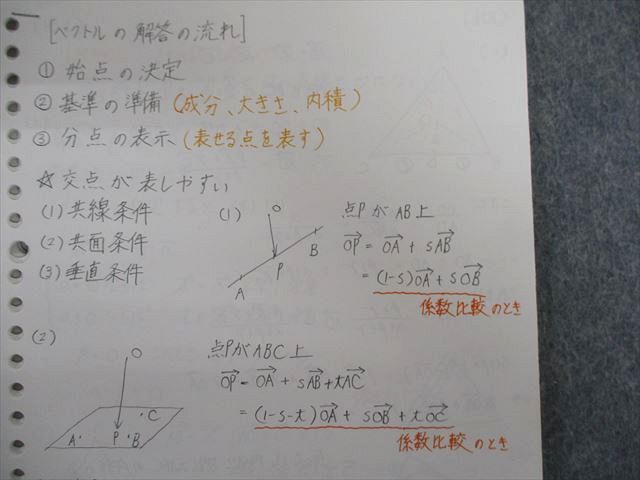 [ベクトルの解答の流れ]
① 始点の決定
② 基準の準備 (成分、大きさ、内積)
③ 分点の表示 (表せる点を表す)
☆ 交点が表しやすい
(1) 共線条件
(2) 共面条件
(3) 垂直条件
(1)
O
P
A
B
点PがAB上
OP = OA + sAB
= (1-s)OA + sOB
係数比較のとき
(2)
O
A
P
B
C
点PがABC上
OP = OA + sAB + tAC
= (1-s-t)OA + sOB + tOC
係数比較のとき